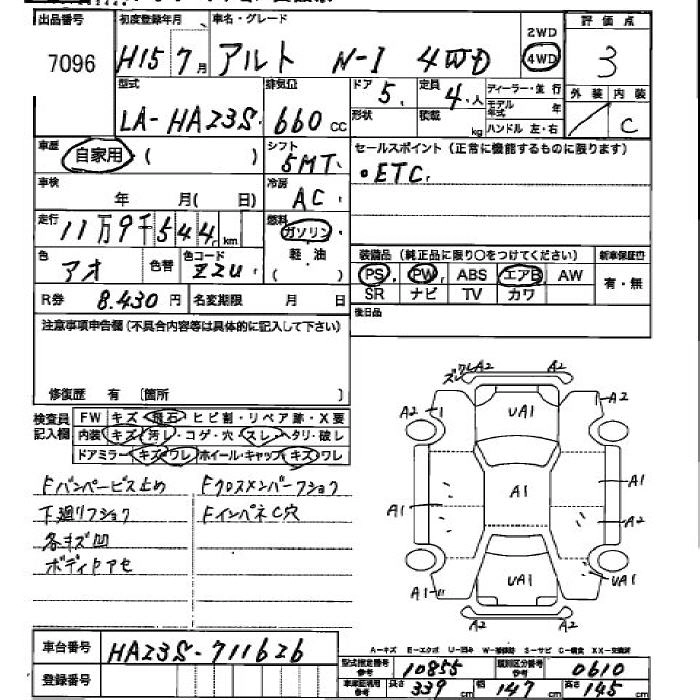 出品番号 初度登録年月 車名・グレード 2WD 評価点
7096 H15 7月 アルト N-1 4WD 4WD 3
型式 排気量 ドア 5 定員 4人 ディーラー・並行 外装 内装
LA-HA23S 660cc 形状 積載 kg モデル年式 年 C
ハンドル 左・右
車歴 自家用 ( ) シフト 5MT セールスポイント (正常に機能するものに限ります)
車検 年 月( 日) 冷房 AC ・ETC
走行 11万9千544km 燃料 ガソリン
軽・油
( )
装備品 (純正品に限り○をつけてください) 新車保証書
色 アオ 色替 色コード ZZU PS PW ABS エアB AW 有・無
R券 8.430円 名変期限 月 日 SR ナビ TV カワ
注意事項申告欄 (不具合内容等は具体的に記入して下さい) 後日品
修復歴 有 〔箇所 〕
検査員記入欄 FW キズ・飛石・ヒビ割・リペア跡・X要
内装 キズ・汚レ・コゲ・穴・スレ・ヘタリ・破レ
ドアミラー キズ・ワレ ホイール・キャップ キズ・ワレ
Fバンパービス止め Fクロスメンバーフショク
下廻リフショク FインパネC穴
各キズ凹
ボディヤケセ
ズレ ワレ A2 A2
A2 UA1 A2
A1 A1 A1
A2
A1 UA1 UA1
A2 A2
A-キズ E-エクボ U-凹み W-補修跡 S-サビ C-腐食 XX-交換済
車台番号 HA23S-711626
登録番号
型式指定番号 参考 10855 類別区分番号 参考 0610
車車証明用 参考 長さ 339cm 幅 147cm 高さ 145cm